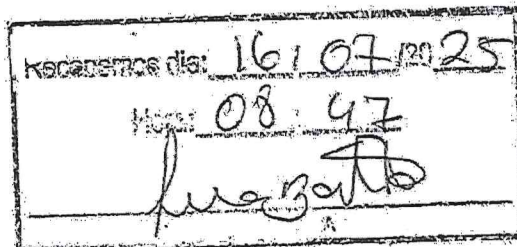 Recebemos dia: 16 / 07 /20 25
Hora: 08 : 47